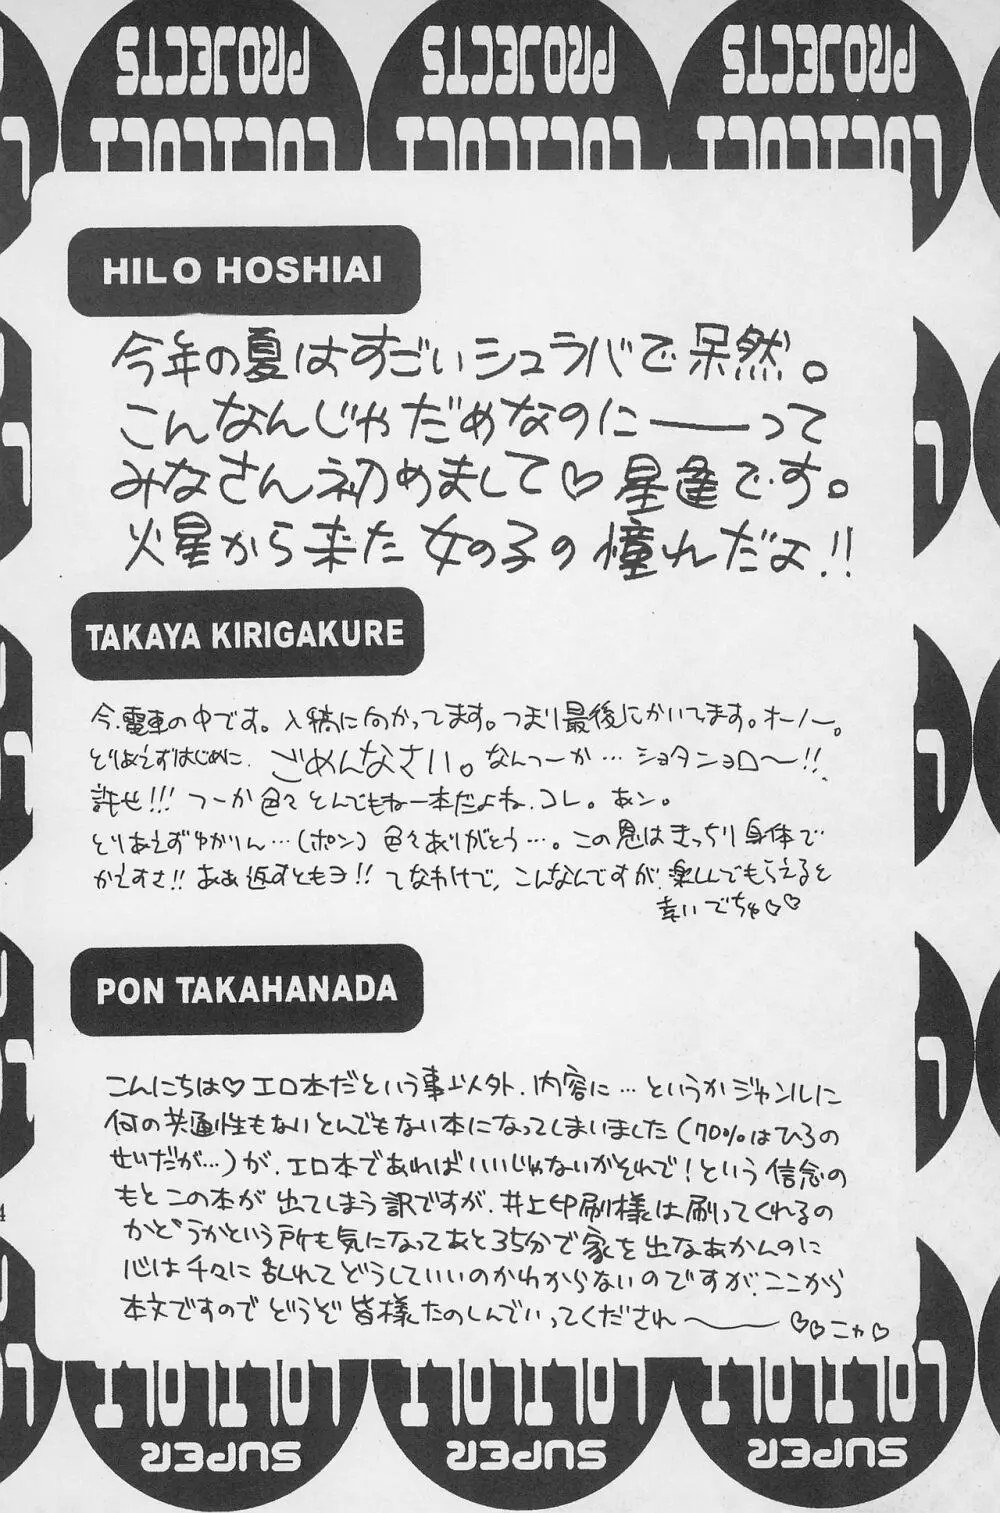 PROJECTS PROJECTS PROJECTS
LOLILOLI LOLILOLI LOLILOLI
HILO HOSHIAI
今年の夏はすごいシュラバで呆然。
こんなんじゃだめなのに――って
みなさん初めまして♡星逢です。
火星から来た女の子の憧れだよ!!
TAKAYA KIRIGAKURE
今、電車の中です。入稿に向かってます。つまり最後にかいてます。オーノー。
とりあえずはじめに、ごめんなさい。なんつーか…ショタンョロ〜!!
許せ!!!つーか色々とんでもねー本だよね、コレ。あン。
とりあえずゆかりん…(ポン)色々ありがとう…。この恩はきっちり身体で
かえすさ!!ああ返すともヨ!!てなわけで、こんなんですが、楽しんでもらえると
幸いでちゅ♡♡
PON TAKAHANADA
こんにちは♡エロ本だという事以外、内容に…というかジャンルに
何の共通性もないとんでもない本になってしまいました(70%はひろの
せいだが…)が、エロ本であればいいじゃないかそれで!という信念の
もとこの本が出てしまう訳ですが、井上印刷様は刷ってくれるの
かどうかという所も気になってあと35分で家を出なあかんのに
心は千々に乱れてどうしていいのかわからないのですが、ここから
本文ですのでどうぞ皆様たのしんでいってくだされ〜――♡♡ニャ♡
4
LOLILOLI LOLILOLI LOLILOLI
SUPER SUPER SUPER